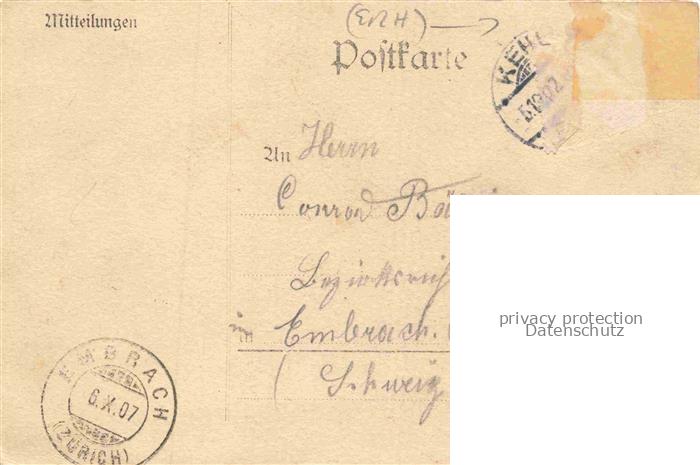 Mitteilungen
(ERH)
Postkarte
KEHL
5.10.07
An Herrn
Conrad
in Embrach.
(Schweiz
EMBRACH
6.X.07
(ZÜRICH)
privacy protection
Datenschutz